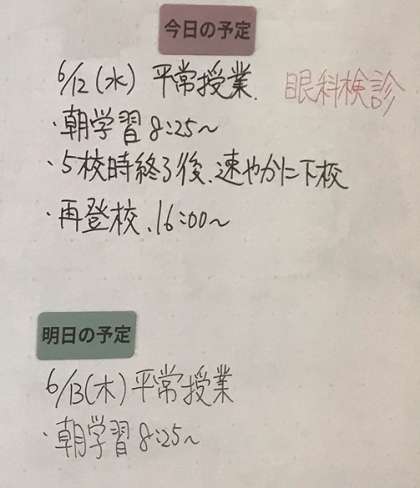 今日の予定
6/12(水) 平常授業. 眼科検診
・朝学習 8:25〜
・5校時終了後、速やかに下校
・再登校、16:00〜
明日の予定
6/13(木) 平常授業
・朝学習 8:25〜